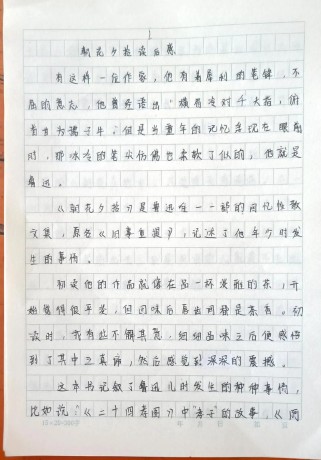 1
朝花夕拾读后感
有这样一位作家，他有着犀利的笔锋，不
屈的意志，他曾经语出“横眉冷对千夫指，俯
首甘为孺子牛”但是当童年的记忆浮现在眼前
时，那冰冷的笔尖仿佛也柔软了似的，他就是
鲁迅。
《朝花夕拾》是鲁迅唯一一部的回忆性散
文集，原名《旧事重提》，记述了他年少时发
生的事情。
初读他的作品就像在品一杯浓酽的茶，开
始觉得很平淡，但回味后喜出
茶香。初
读时，我有些不解其意，细细品味之后便感悟
到了其中之真谛，然后感觉到深深的震撼。
这本书记叙了鲁迅儿时发生的种种事情，
比如说：《二十四孝图》中“孝子”的故事，《阿
15×20=300字
年 月 日 第 页